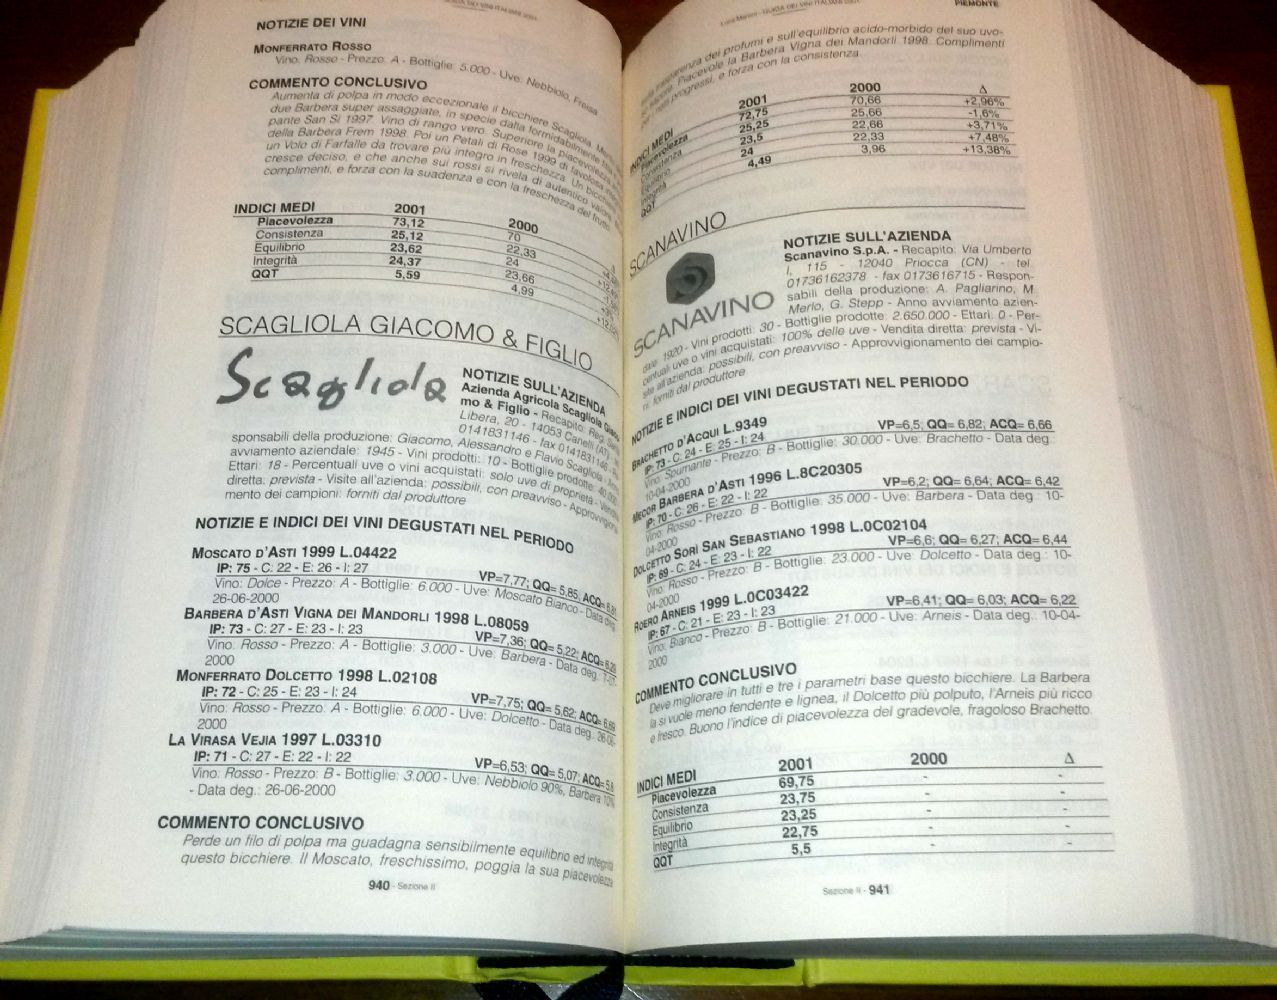 GUIDA DEI VINI ITALIANI 2001
NOTIZIE DEI VINI
MONFERRATO ROSSO
Vino: Rosso - Prezzo: A - Bottiglie: 5.000 - Uve: Nebbiolo, Freisa
COMMENTO CONCLUSIVO
Aumenta di polpa in modo eccezionale il bicchiere Scagliola.
due Barbera super assaggiate, in specie dalla formidabilmente
pante San Sì 1997. Vino di rango vero. Superiore la piacevolezza
della Barbera Frem 1998. Poi un Petali di Rose 1999 di favolosa
un Volo di Farfalle da trovare più integro in freschezza. Un bicchiere
cresce deciso, e che anche sui rossi si rivela di autentico valore.
complimenti, e forza con la suadenza e con la freschezza del frutto.
INDICI MEDI 2001 2000 Δ
Piacevolezza 73,12 70
Consistenza 25,12 22,33
Equilibrio 23,62 24
Integrità 24,37 23,66
QQT 5,59 4,99
SCAGLIOLA GIACOMO & FIGLIO
Scagliola
NOTIZIE SULL'AZIENDA
Azienda Agricola Scagliola Giaco-
mo & Figlio - Recapito: Reg. San
Libera, 20 - 14053 Canelli (AT) - tel.
0141831146 - fax 0141831146 - Re-
sponsabili della produzione: Giacomo, Alessandro e Flavio Scagliola - Anno
avviamento aziendale: 1945 - Vini prodotti: 10 - Bottiglie prodotte: 40.000
Ettari: 18 - Percentuali uve o vini acquistati: solo uve di proprietà - Vendita
diretta: prevista - Visite all'azienda: possibili, con preavviso - Approvvigiona-
mento dei campioni: forniti dal produttore
NOTIZIE E INDICI DEI VINI DEGUSTATI NEL PERIODO
MOSCATO D'ASTI 1999 L.04422
IP: 75 - C: 22 - E: 26 - I: 27 VP=7,77; QQ= 5,85; ACQ=
Vino: Dolce - Prezzo: A - Bottiglie: 6.000 - Uve: Moscato Bianco - Data deg.:
26-06-2000
BARBERA D'ASTI VIGNA DEI MANDORLI 1998 L.08059
IP: 73 - C: 27 - E: 23 - I: 23 VP=7,36; QQ= 5,22; ACQ=
Vino: Rosso - Prezzo: A - Bottiglie: 3.000 - Uve: Barbera - Data deg.:
2000
MONFERRATO DOLCETTO 1998 L.02108
IP: 72 - C: 25 - E: 23 - I: 24 VP=7,75; QQ= 5,62; ACQ=
Vino: Rosso - Prezzo: A - Bottiglie: 6.000 - Uve: Dolcetto - Data deg.: 26-06-
2000
LA VIRASA VEJIA 1997 L.03310
IP: 71 - C: 27 - E: 22 - I: 22 VP=6,53; QQ= 5,07; ACQ=
Vino: Rosso - Prezzo: B - Bottiglie: 3.000 - Uve: Nebbiolo 90%, Barbera 10%
- Data deg.: 26-06-2000
COMMENTO CONCLUSIVO
Perde un filo di polpa ma guadagna sensibilmente equilibrio ed integrità
questo bicchiere. Il Moscato, freschissimo, poggia la sua piacevolezza
940 - Sezione II
Luca Maroni - GUIDA DEI VINI ITALIANI 2001 PIEMONTE
sulla trasparenza dei profumi e sull'equilibrio acido-morbido del suo uvo-
Piacevole la Barbera Vigna dei Mandorli 1998. Complimenti
per netti progressi, e forza con la consistenza.
INDICI MEDI 2001 2000 Δ
Piacevolezza 72,75 70,66 +2,96%
Consistenza 25,25 25,66 -1,6%
Equilibrio 23,5 22,66 +3,71%
Integrità 24 22,33 +7,48%
QQT 4,49 3,96 +13,38%
SCANAVINO
SCANAVINO
NOTIZIE SULL'AZIENDA
Scanavino S.p.A. - Recapito: Via Umberto
I, 115 - 12040 Priocca (CN) - tel.
01736162378 - fax 0173616715 - Respon-
sabili della produzione: A. Pagliarino, M.
Merlo, G. Stepp - Anno avviamento azien-
dale: 1920 - Vini prodotti: 30 - Bottiglie prodotte: 2.650.000 - Ettari: 0 - Per-
centuali uve o vini acquistati: 100% delle uve - Vendita diretta: prevista - Vi-
site all'azienda: possibili, con preavviso - Approvvigionamento dei campio-
ni: forniti dal produttore
NOTIZIE E INDICI DEI VINI DEGUSTATI NEL PERIODO
BRACHETTO D'ACQUI L.9349
IP: 73 - C: 24 - E: 25 - I: 24 VP=6,5; QQ= 6,82; ACQ= 6,66
Vino: Spumante - Prezzo: B - Bottiglie: 30.000 - Uve: Brachetto - Data deg.:
10-04-2000
MECOR BARBERA D'ASTI 1996 L.8C20305
IP: 70 - C: 26 - E: 22 - I: 22 VP=6,2; QQ= 6,64; ACQ= 6,42
Vino: Rosso - Prezzo: B - Bottiglie: 35.000 - Uve: Barbera - Data deg.: 10-
04-2000
DOLCETTO SORÌ SAN SEBASTIANO 1998 L.0C02104
IP: 69 - C: 24 - E: 23 - I: 22 VP=6,6; QQ= 6,27; ACQ= 6,44
Vino: Rosso - Prezzo: B - Bottiglie: 23.000 - Uve: Dolcetto - Data deg.: 10-
04-2000
ROERO ARNEIS 1999 L.0C03422
IP: 67 - C: 21 - E: 23 - I: 23 VP=6,41; QQ= 6,03; ACQ= 6,22
Vino: Bianco - Prezzo: B - Bottiglie: 21.000 - Uve: Arneis - Data deg.: 10-04-
2000
COMMENTO CONCLUSIVO
Deve migliorare in tutti e tre i parametri base questo bicchiere. La Barbera
la si vuole meno tendente e lignea, il Dolcetto più polputo, l'Arneis più ricco
e fresco. Buono l'indice di piacevolezza del gradevole, fragoloso Brachetto.
INDICI MEDI 2001 2000 Δ
Piacevolezza 69,75 - -
Consistenza 23,75 - -
Equilibrio 23,25 - -
Integrità 22,75 - -
QQT 5,5 - -
Sezione II - 941